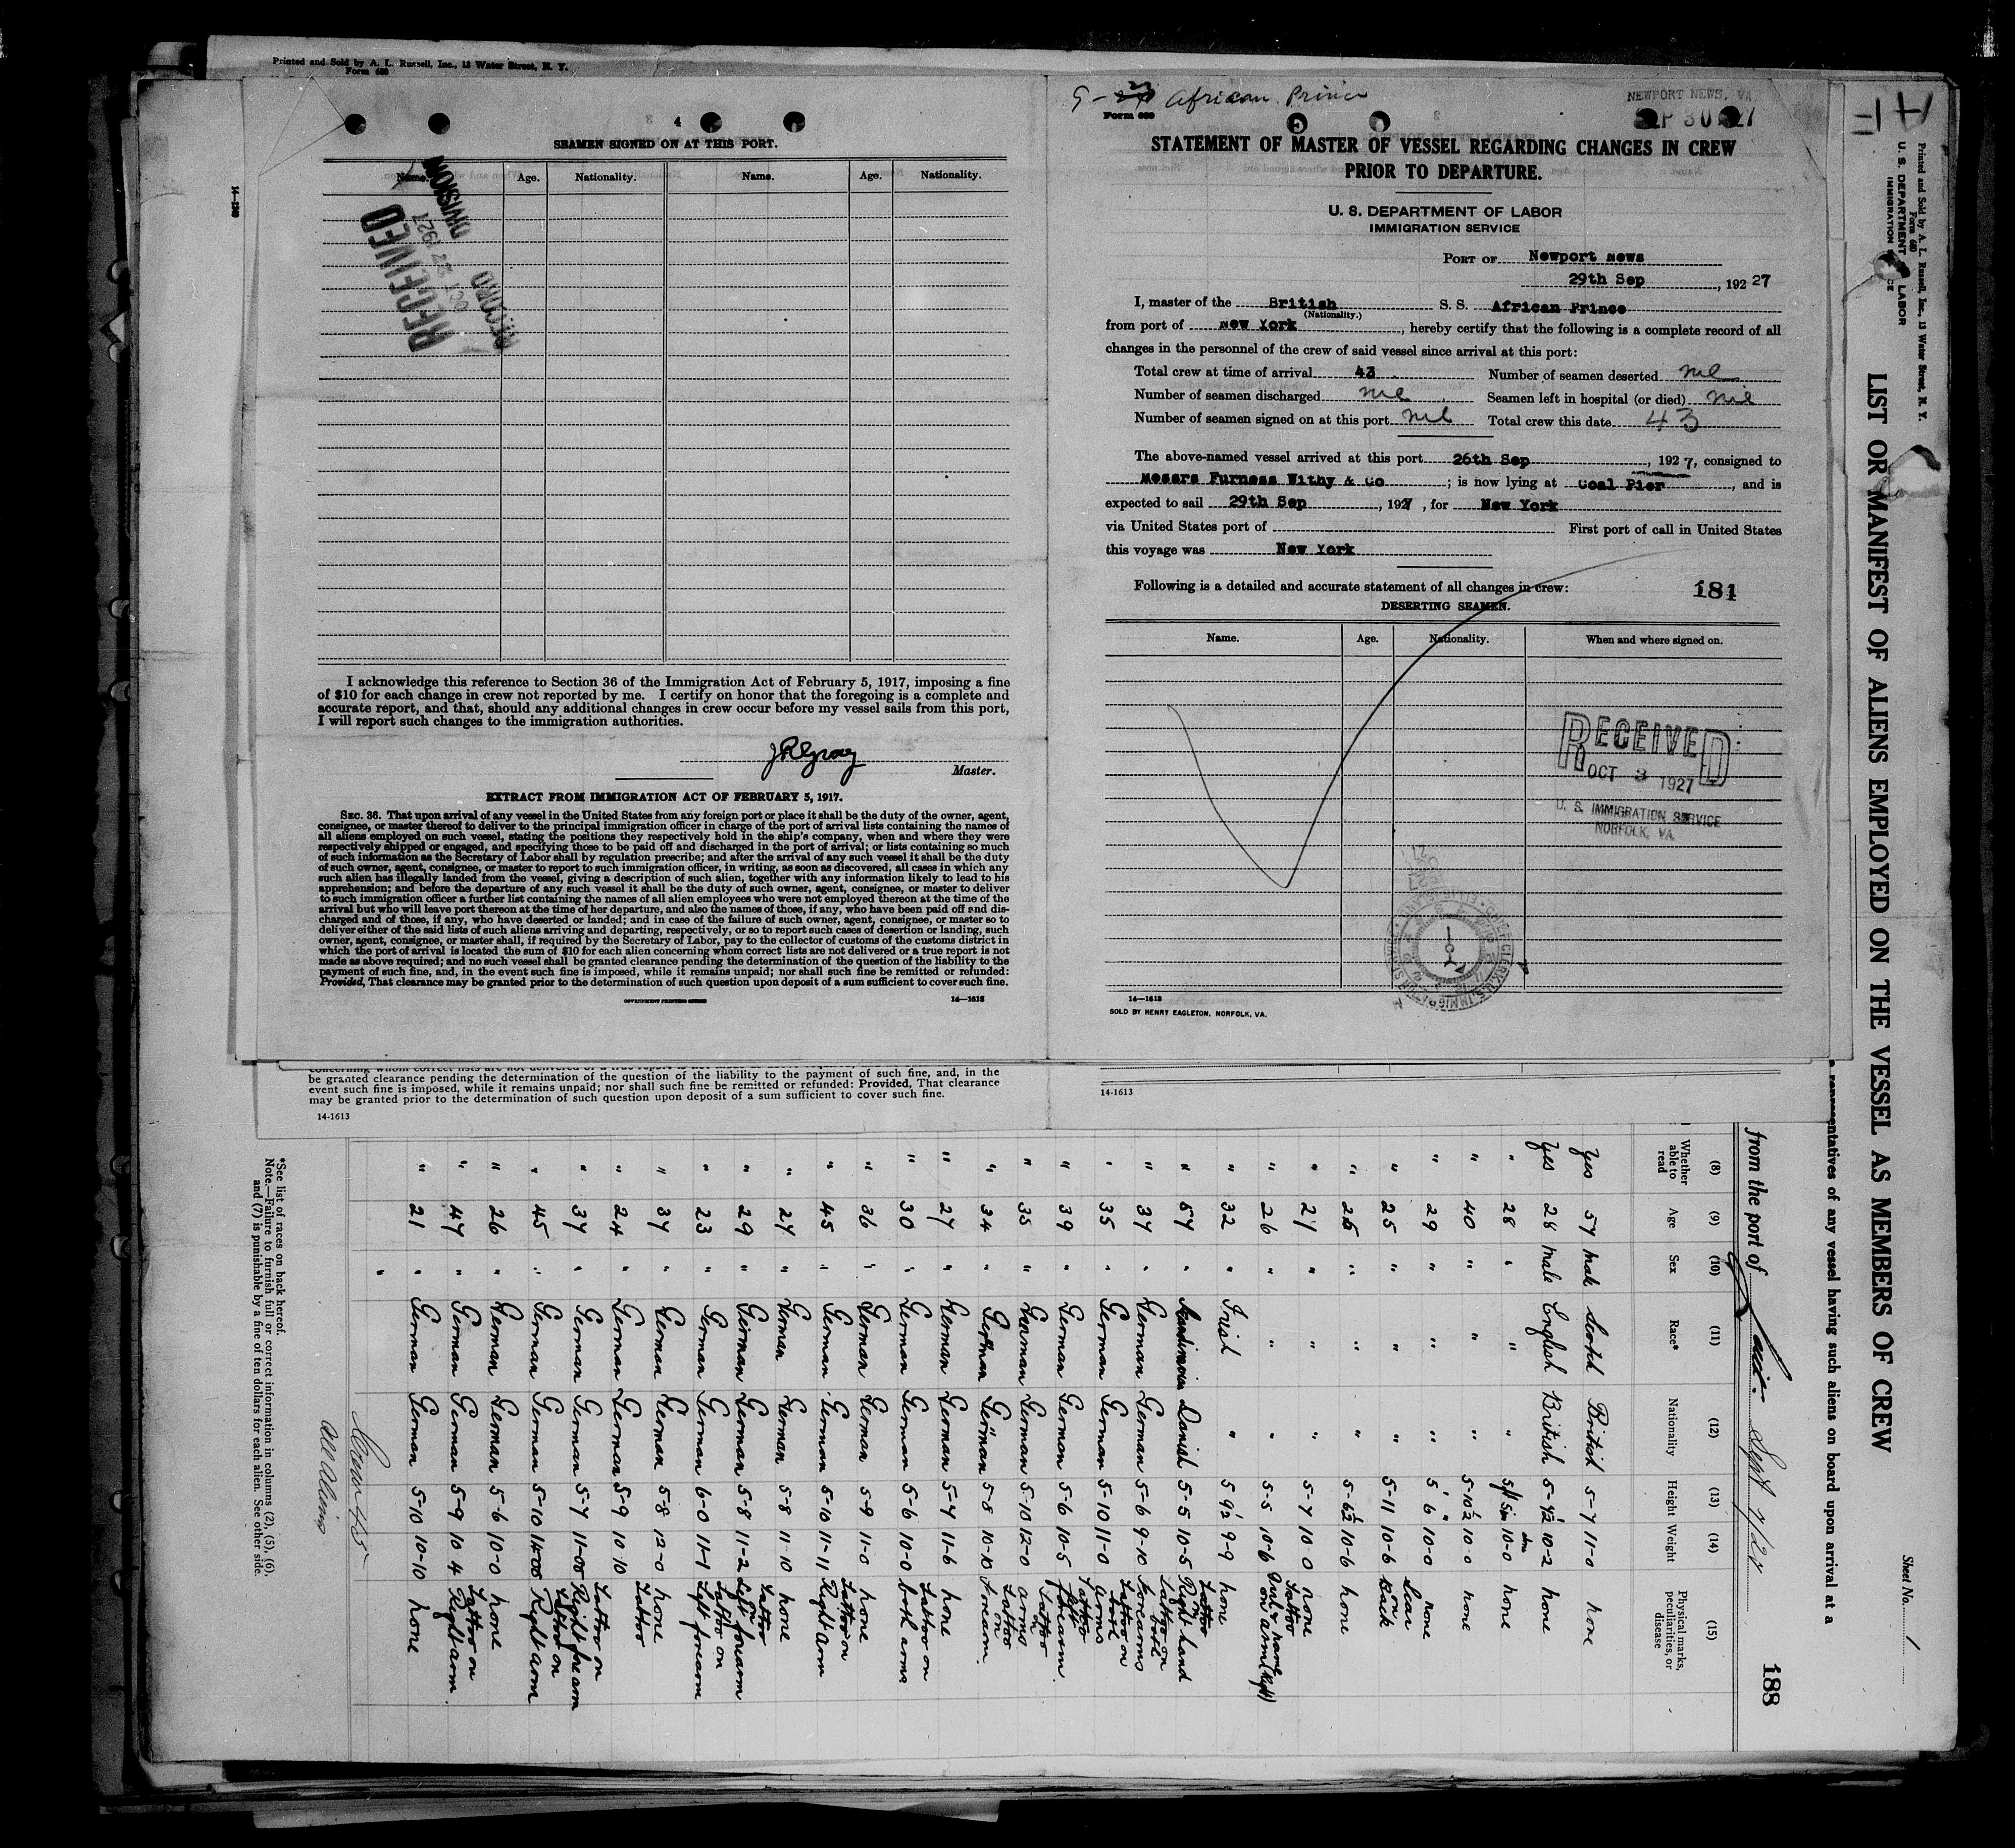 Printed and Sold by A. L. Russell, Inc., 13 Water Street, N. Y.
Form 680
4
SEAMEN SIGNED ON AT THIS PORT.
Name. Age. Nationality. Name. Age. Nationality.
RECEIVED
OCT 22 1927
RECORD DIVISION
I acknowledge this reference to Section 36 of the Immigration Act of February 5, 1917, imposing a fine
of $10 for each change in crew not reported by me. I certify on honor that the foregoing is a complete and
accurate report, and that, should any additional changes in crew occur before my vessel sails from this port,
I will report such changes to the immigration authorities.
JRGray
Master.
EXTRACT FROM IMMIGRATION ACT OF FEBRUARY 5, 1917.
SEC. 36. That upon arrival of any vessel in the United States from any foreign port or place it shall be the duty of the owner, agent,
consignee, or master thereof to deliver to the principal immigration officer in charge of the port of arrival lists containing the names of
all aliens employed on such vessel, stating the positions they respectively hold in the ship's company, when and where they were
respectively shipped or engaged, and specifying those to be paid off and discharged in the port of arrival; or lists containing so much
of such information as the Secretary of Labor shall by regulation prescribe; and after the arrival of any such vessel it shall be the duty
of such owner, agent, consignee, or master to report to such immigration officer, in writing, as soon as discovered, all cases in which any
such alien has illegally landed from the vessel, giving a description of such alien, together with any information likely to lead to his
apprehension; and before the departure of any such vessel it shall be the duty of such owner, agent, consignee, or master to deliver
to such immigration officer a further list containing the names of all alien employees who were not employed thereon at the time of the
arrival but who will leave port thereon at the time of her departure, and also the names of those, if any, who have been paid off and dis-
charged and of those, if any, who have deserted or landed; and in case of the failure of such owner, agent, consignee, or master so to
deliver either of the said lists of such aliens arriving and departing, respectively, or so to report such cases of desertion or landing, such
owner, agent, consignee, or master shall, if required by the Secretary of Labor, pay to the collector of customs of the customs district in
which the port of arrival is located the sum of $10 for each alien concerning whom correct lists are not delivered or a true report is not
made as above required; and no such vessel shall be granted clearance pending the determination of the question of the liability to the
payment of such fine, and, in the event such fine is imposed, while it remains unpaid; nor shall such fine be remitted or refunded:
Provided, That clearance may be granted prior to the determination of such question upon deposit of a sum sufficient to cover such fine.
GOVERNMENT PRINTING OFFICE 14—1613
African Prince
NEWPORT NEWS, VA.
SEP 30 1927
Form 689
STATEMENT OF MASTER OF VESSEL REGARDING CHANGES IN CREW
PRIOR TO DEPARTURE.
U. S. DEPARTMENT OF LABOR
IMMIGRATION SERVICE
PORT OF Newport News
29th Sep, 192 27
I, master of the British S. S. African Prince
(Nationality.)
from port of New York, hereby certify that the following is a complete record of all
changes in the personnel of the crew of said vessel since arrival at this port:
Total crew at time of arrival 43 Number of seamen deserted nil
Number of seamen discharged nil Seamen left in hospital (or died) nil
Number of seamen signed on at this port nil Total crew this date 43
The above-named vessel arrived at this port 26th Sep, 1927, consigned to
Messrs Furness Withy & Co; is now lying at Coal Pier, and is
expected to sail 29th Sep, 1927, for New York
via United States port of First port of call in United States
this voyage was New York
Following is a detailed and accurate statement of all changes in crew: 181
DESERTING SEAMEN.
Name. Age. Nationality. When and where signed on.
RECEIVED
OCT 3 1927
U. S. IMMIGRATION SERVICE
NORFOLK, VA.
14—1613
SOLD BY HENRY EAGLETON, NORFOLK, VA.
be granted clearance pending the determination of the question of the liability to the payment of such fine, and, in the
event such fine is imposed, while it remains unpaid; nor shall such fine be remitted or refunded: Provided, That clearance
may be granted prior to the determination of such question upon deposit of a sum sufficient to cover such fine.
14-1613
14-1613
Printed and Sold by A. L. Russell, Inc., 13 Water Street, N. Y.
Form 680
U. S. DEPARTMENT OF LABOR
IMMIGRATION SERVICE
LIST OR MANIFEST OF ALIENS EMPLOYED ON THE VESSEL AS MEMBERS OF CREW
Sheet No. 1
representatives of any vessel having such aliens on board upon arrival at a
from the port of
188
(8) (9) (10) (11) (12) (13) (14) (15)
Whether able to read Age Sex Race* Nationality Height Weight Physical marks, peculiarities, or disease
Yes 57 male Scotch British 5-7 11-0 none
Yes 28 male English British 5-9½ 10-2 none
" 28 " " " 10-0 none
" 40 " " " 5-10½ 10-0 none
" 29 " " " 5'6" 10-0 none
" 25 " " " 5-11 10-6 Scar on Back
" 25 " " " 5-6½ 10-6 none
" 27 " " " 5-7 10-0 none
" 26 " " " 5-5 10-6 Tattoo
" 32 " Irish " 5 9½ 9-9 none
" 57 " Danish 5-5 10-5 Tattoo on Right hand
" 37 " German German 5-6 9-10 Tattoo on both Forearms
" 35 " German German 5-10 11-0 Tattoo on both arms
" 39 " German German 5-6 10-5 Tattoo
" 35 " German German 5-10 12-0 Tattoo on arms
" 34 " German German 5-8 10-10 Tattoo on Forearm
" 27 " German German 5-4 11-6 none
" 30 " German German 5-6 10-0 Tattoo on both arms
" 36 " German German 5-9 11-0 none
" 45 " German German 5-10 11-11 Tattoo on Right arm
" 27 " German German 5-8 11-10 none
" 29 " German German 5-8 11-2 Tattoo on Left forearm
" 23 " German German 6-0 11-1 Tattoo on Left forearm
" 37 " German German 5-8 12-0 none
" 24 " German German 5-9 10 10 Tattoo
" 37 " German German 5-7 11-00 Tattoo on Right forearm
" 45 " German German 5-10 11-00 Tattoo on Right arm
" 26 " German German 5-6 10-0 none
" 47 " German German 5-9 10 4 Tattoo on Right arm
" 21 " German German 5-10 10-10 none
all aliens
*See list of races on back hereof.
Note.—Failure to furnish full or correct information in columns (2), (5), (6),
and (7) is punishable by a fine of ten dollars for each alien. See other side.
14-1240